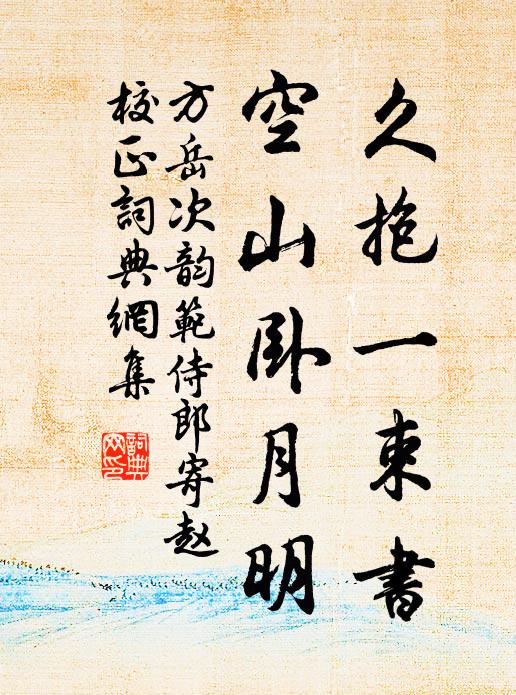 久抱一束书
空山卧月明
方岳次韵范侍郎寄赵
校正詞典網集
詞典网印